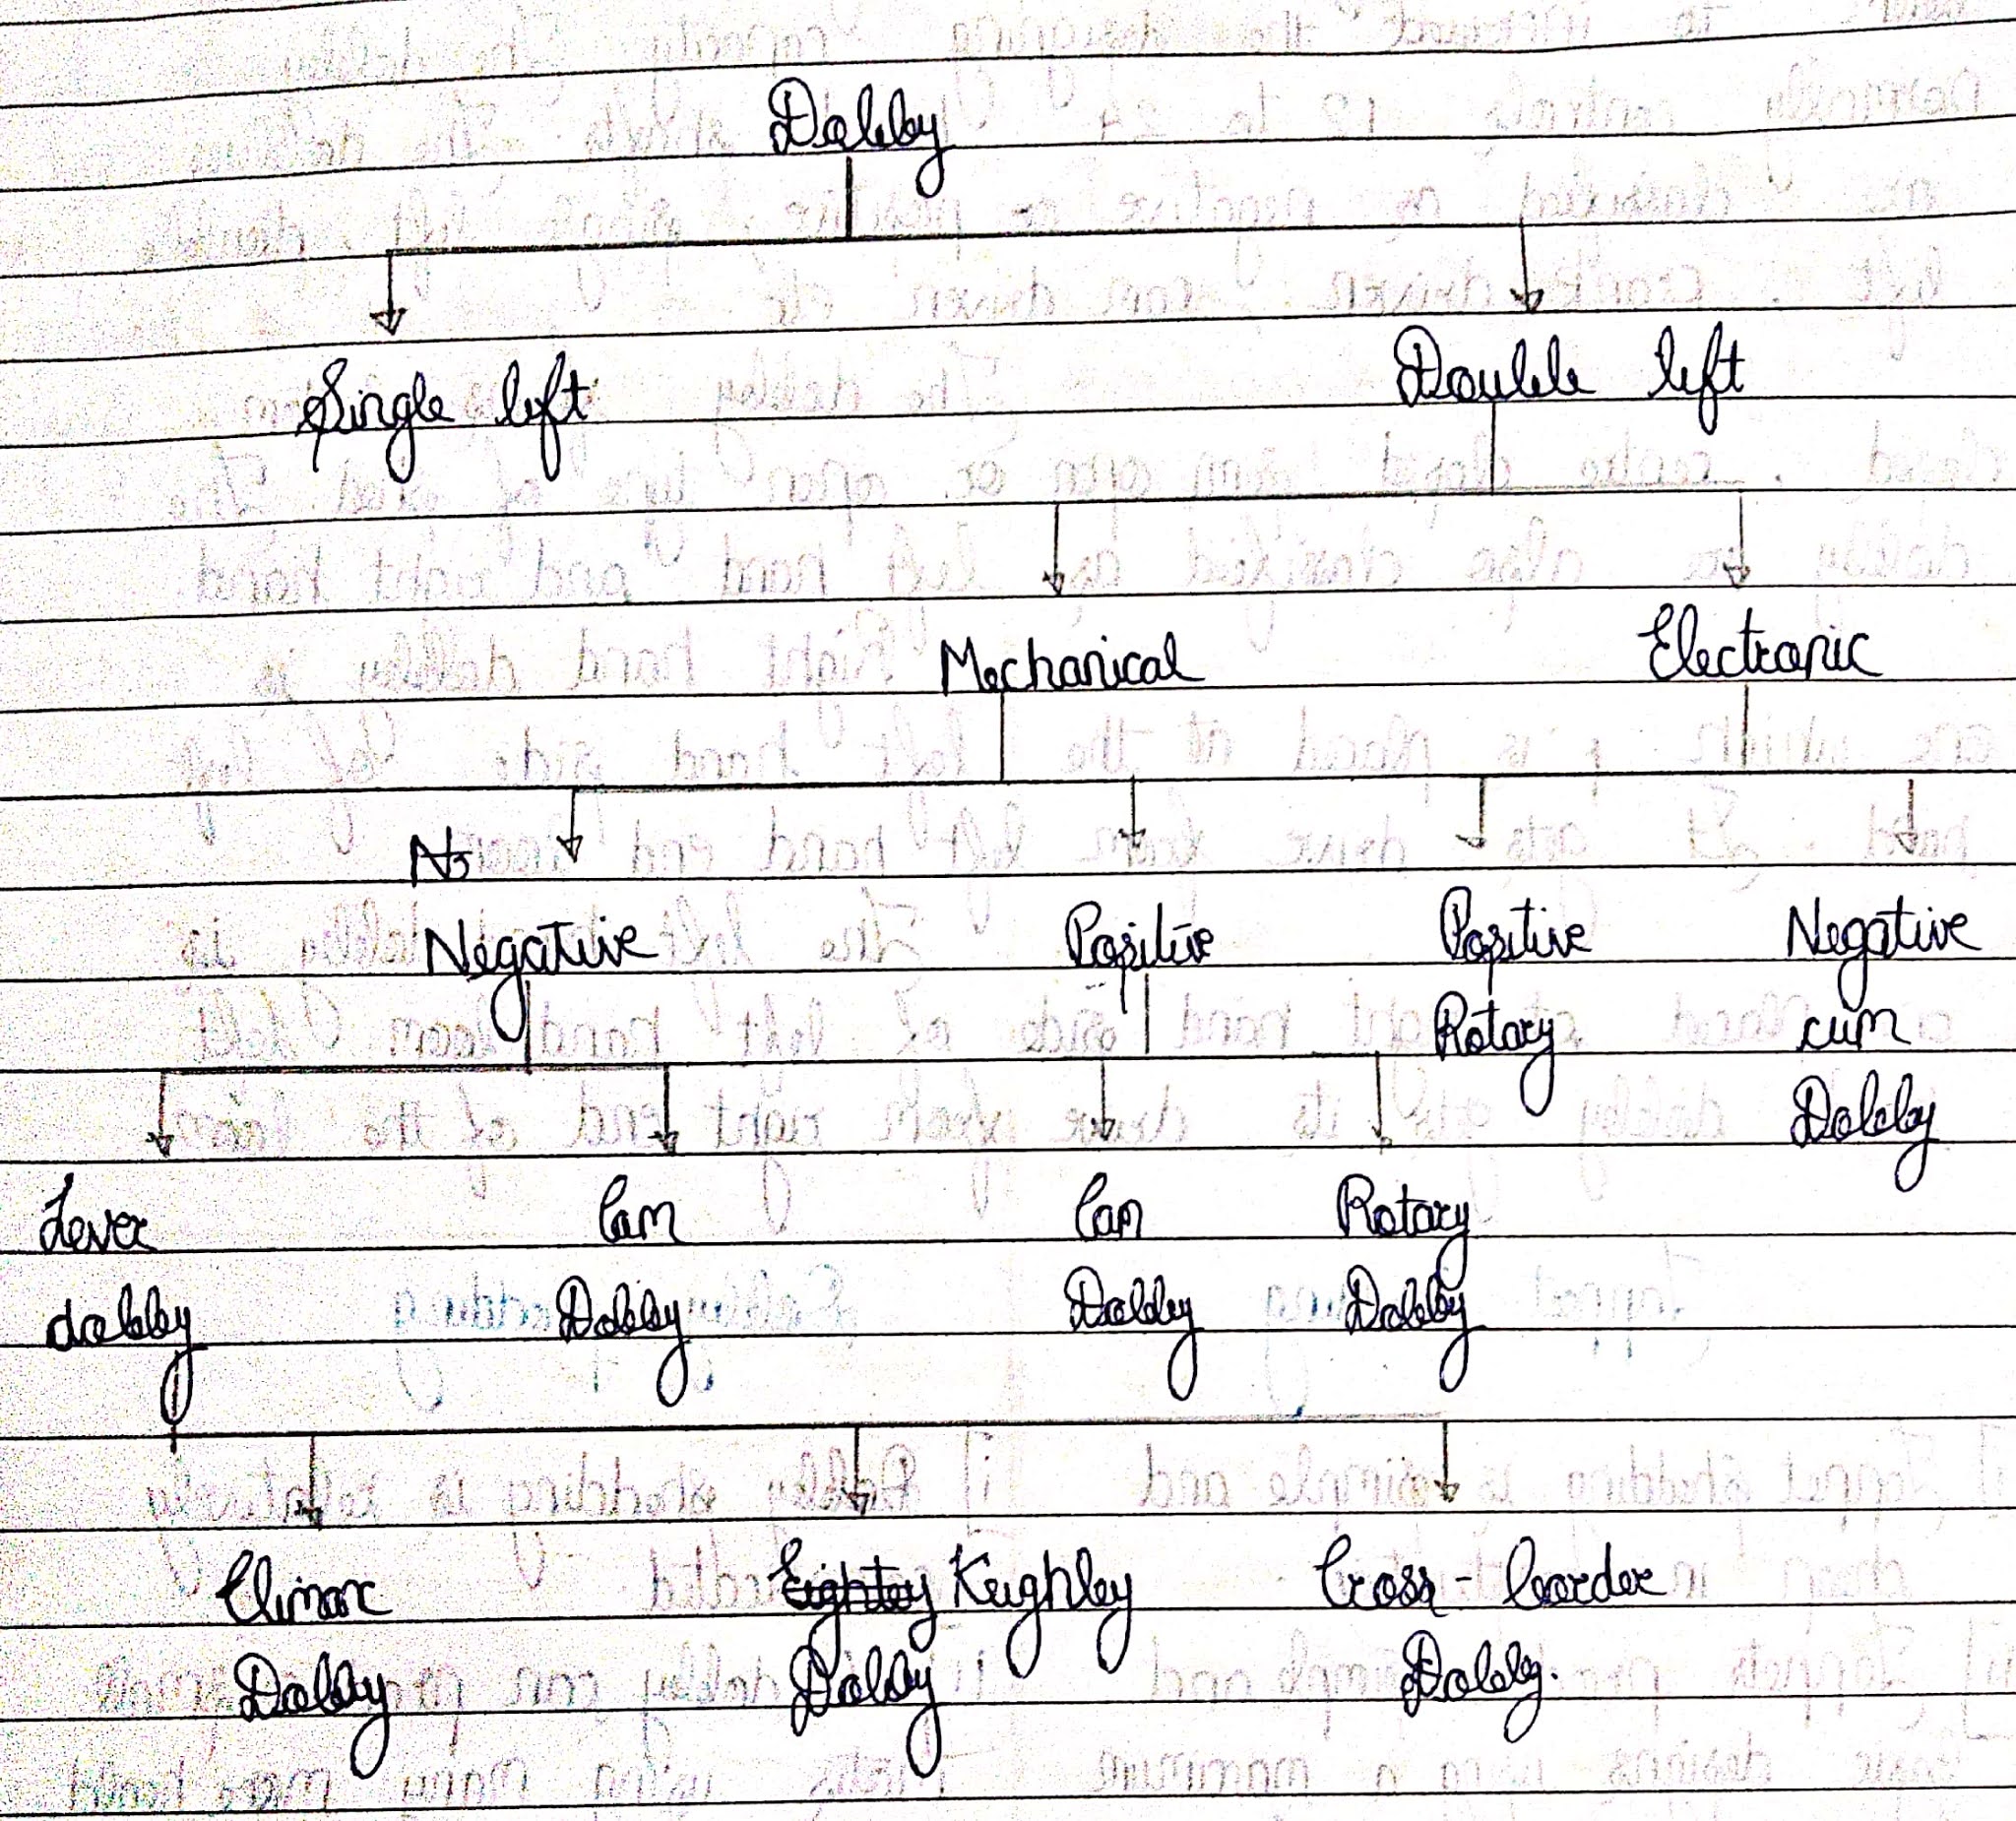 Dobby
Single lift
Double lift
Mechanical
Electronic
Negative
Positive
Positive
Rotary
Negative
cum
Dobby
Lever
dobby
Cam
Dobby
Cam
Dobby
Rotary
Dobby
Climax
Dobby
Keighley
Dobby
Cross-border
Dobby.